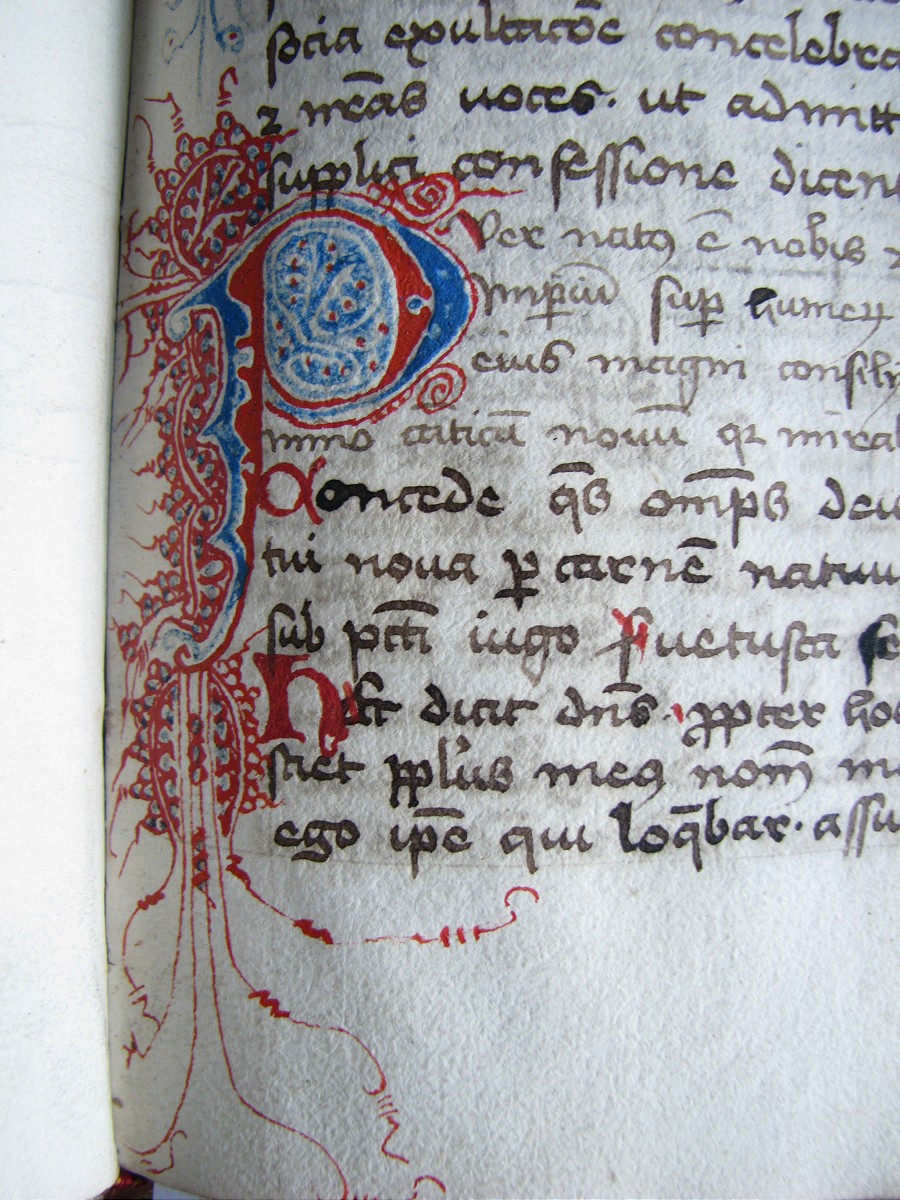 socia exultatōe concelebra
⁊ nr̄as uoces. ut admitt
supplici confessione dicent
Per natꝯ ē nobis ⁊
Imꝑiū suꝑ humeꝝ
eius magni consilij
mino cāticū nouū qꝛ mirab
Concede q̄s om̄ps deu
tui noua ꝑ carnē natiui
sub pctī iugo uetusta se
Hec dicit dn̄s. ꝓpter hoc
sciet ppl̓us meꝯ nom̄ me
ego ip̄e qui loq̄bar. assu